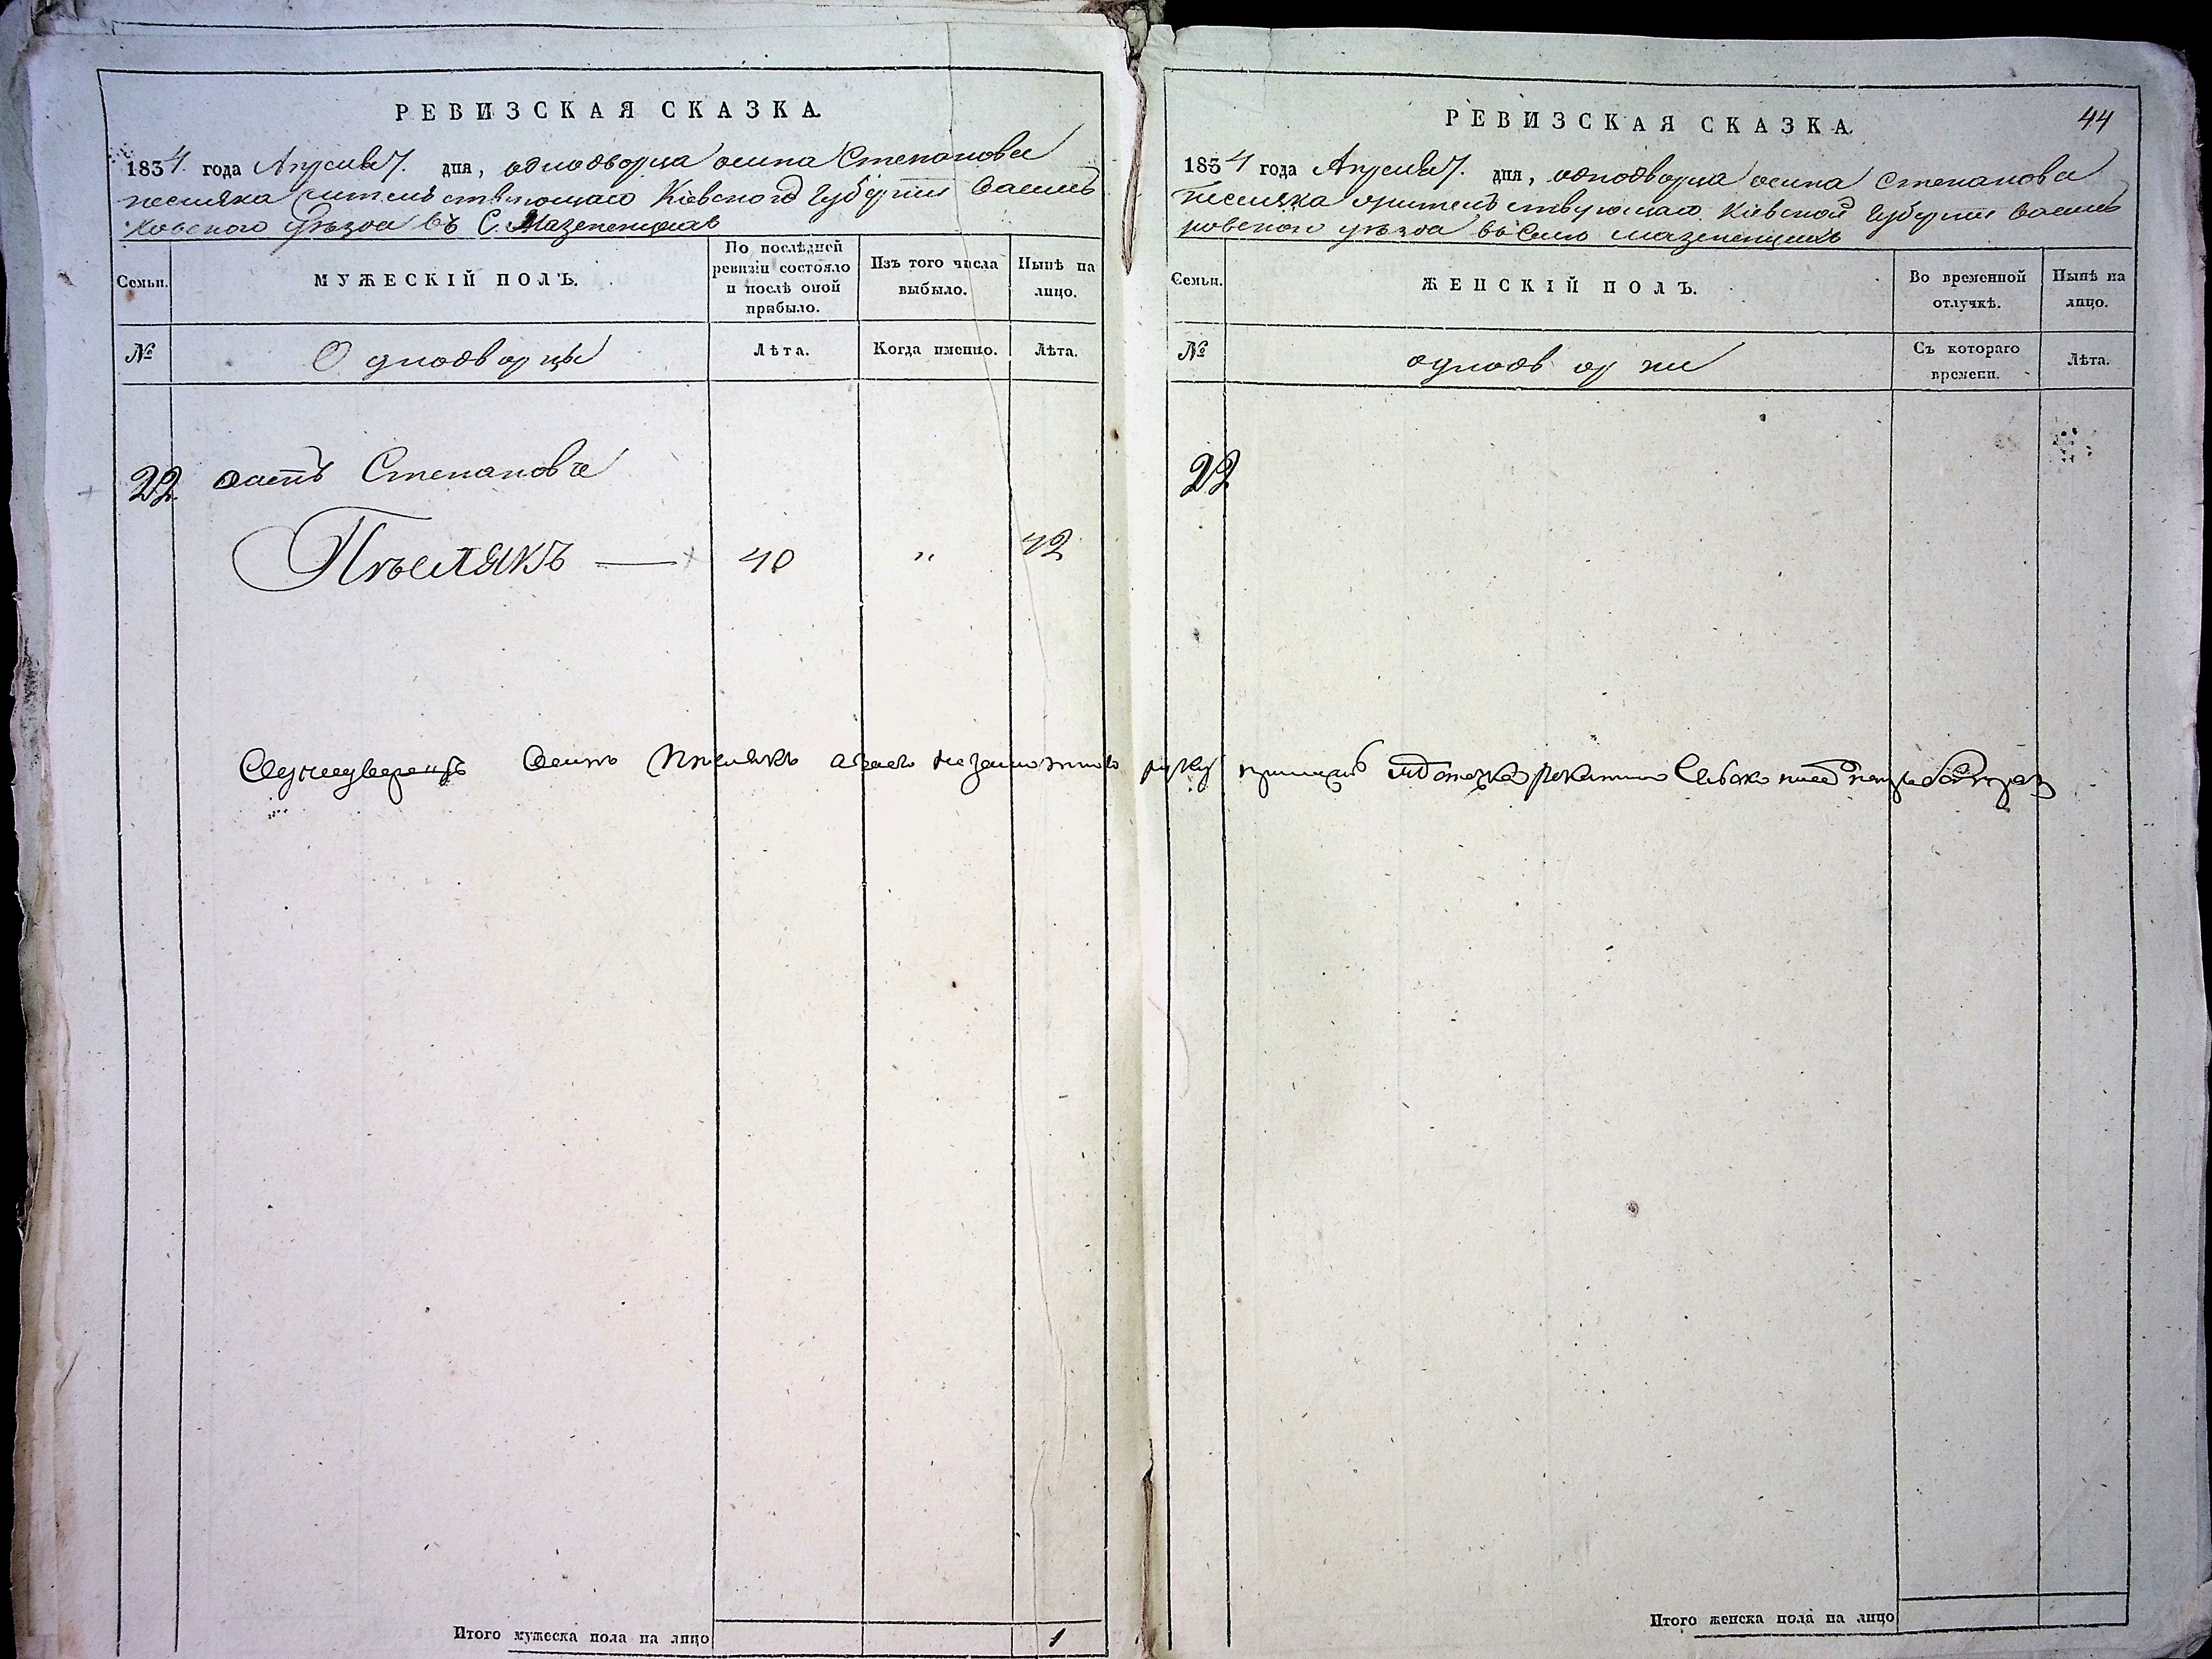 РЕВИЗСКАЯ СКАЗКА.
1834. года Апреля 7. дня, однодворца осипа Степанова
песляка жительствующаго Кіевской Губерніи Василь
ковскаго Уѣзда въ С. Мазепенцахъ
Семьи.
МУЖЕСКІЙ ПОЛЪ.
По послѣдней ревизіи состояло и послѣ оной прибыло.
Изъ того числа выбыло.
Нынѣ на лицо.
№
Однодворцы
Лѣта.
Когда именно.
Лѣта.
22. Осипъ Степановъ
Пѣслякъ — 40 " 42
Итого мужеска пола на лицо 1
44
РЕВИЗСКАЯ СКАЗКА.
1834 года Апреля 7. дня, однодворца осипа Степанова
песляка жительствующаго Кіевской Губерніи Василь
ковскаго уѣзда въ Селѣ мазепенцахъ
Семьи.
ЖЕНСКІЙ ПОЛЪ.
Во временной отлучкѣ.
Нынѣ на лицо.
№
однодворки
Съ котораго времени.
Лѣта.
22
Однодворецъ Осипъ Пѣслякъ а вместо неграмотного руку
Итого женска пола на лицо